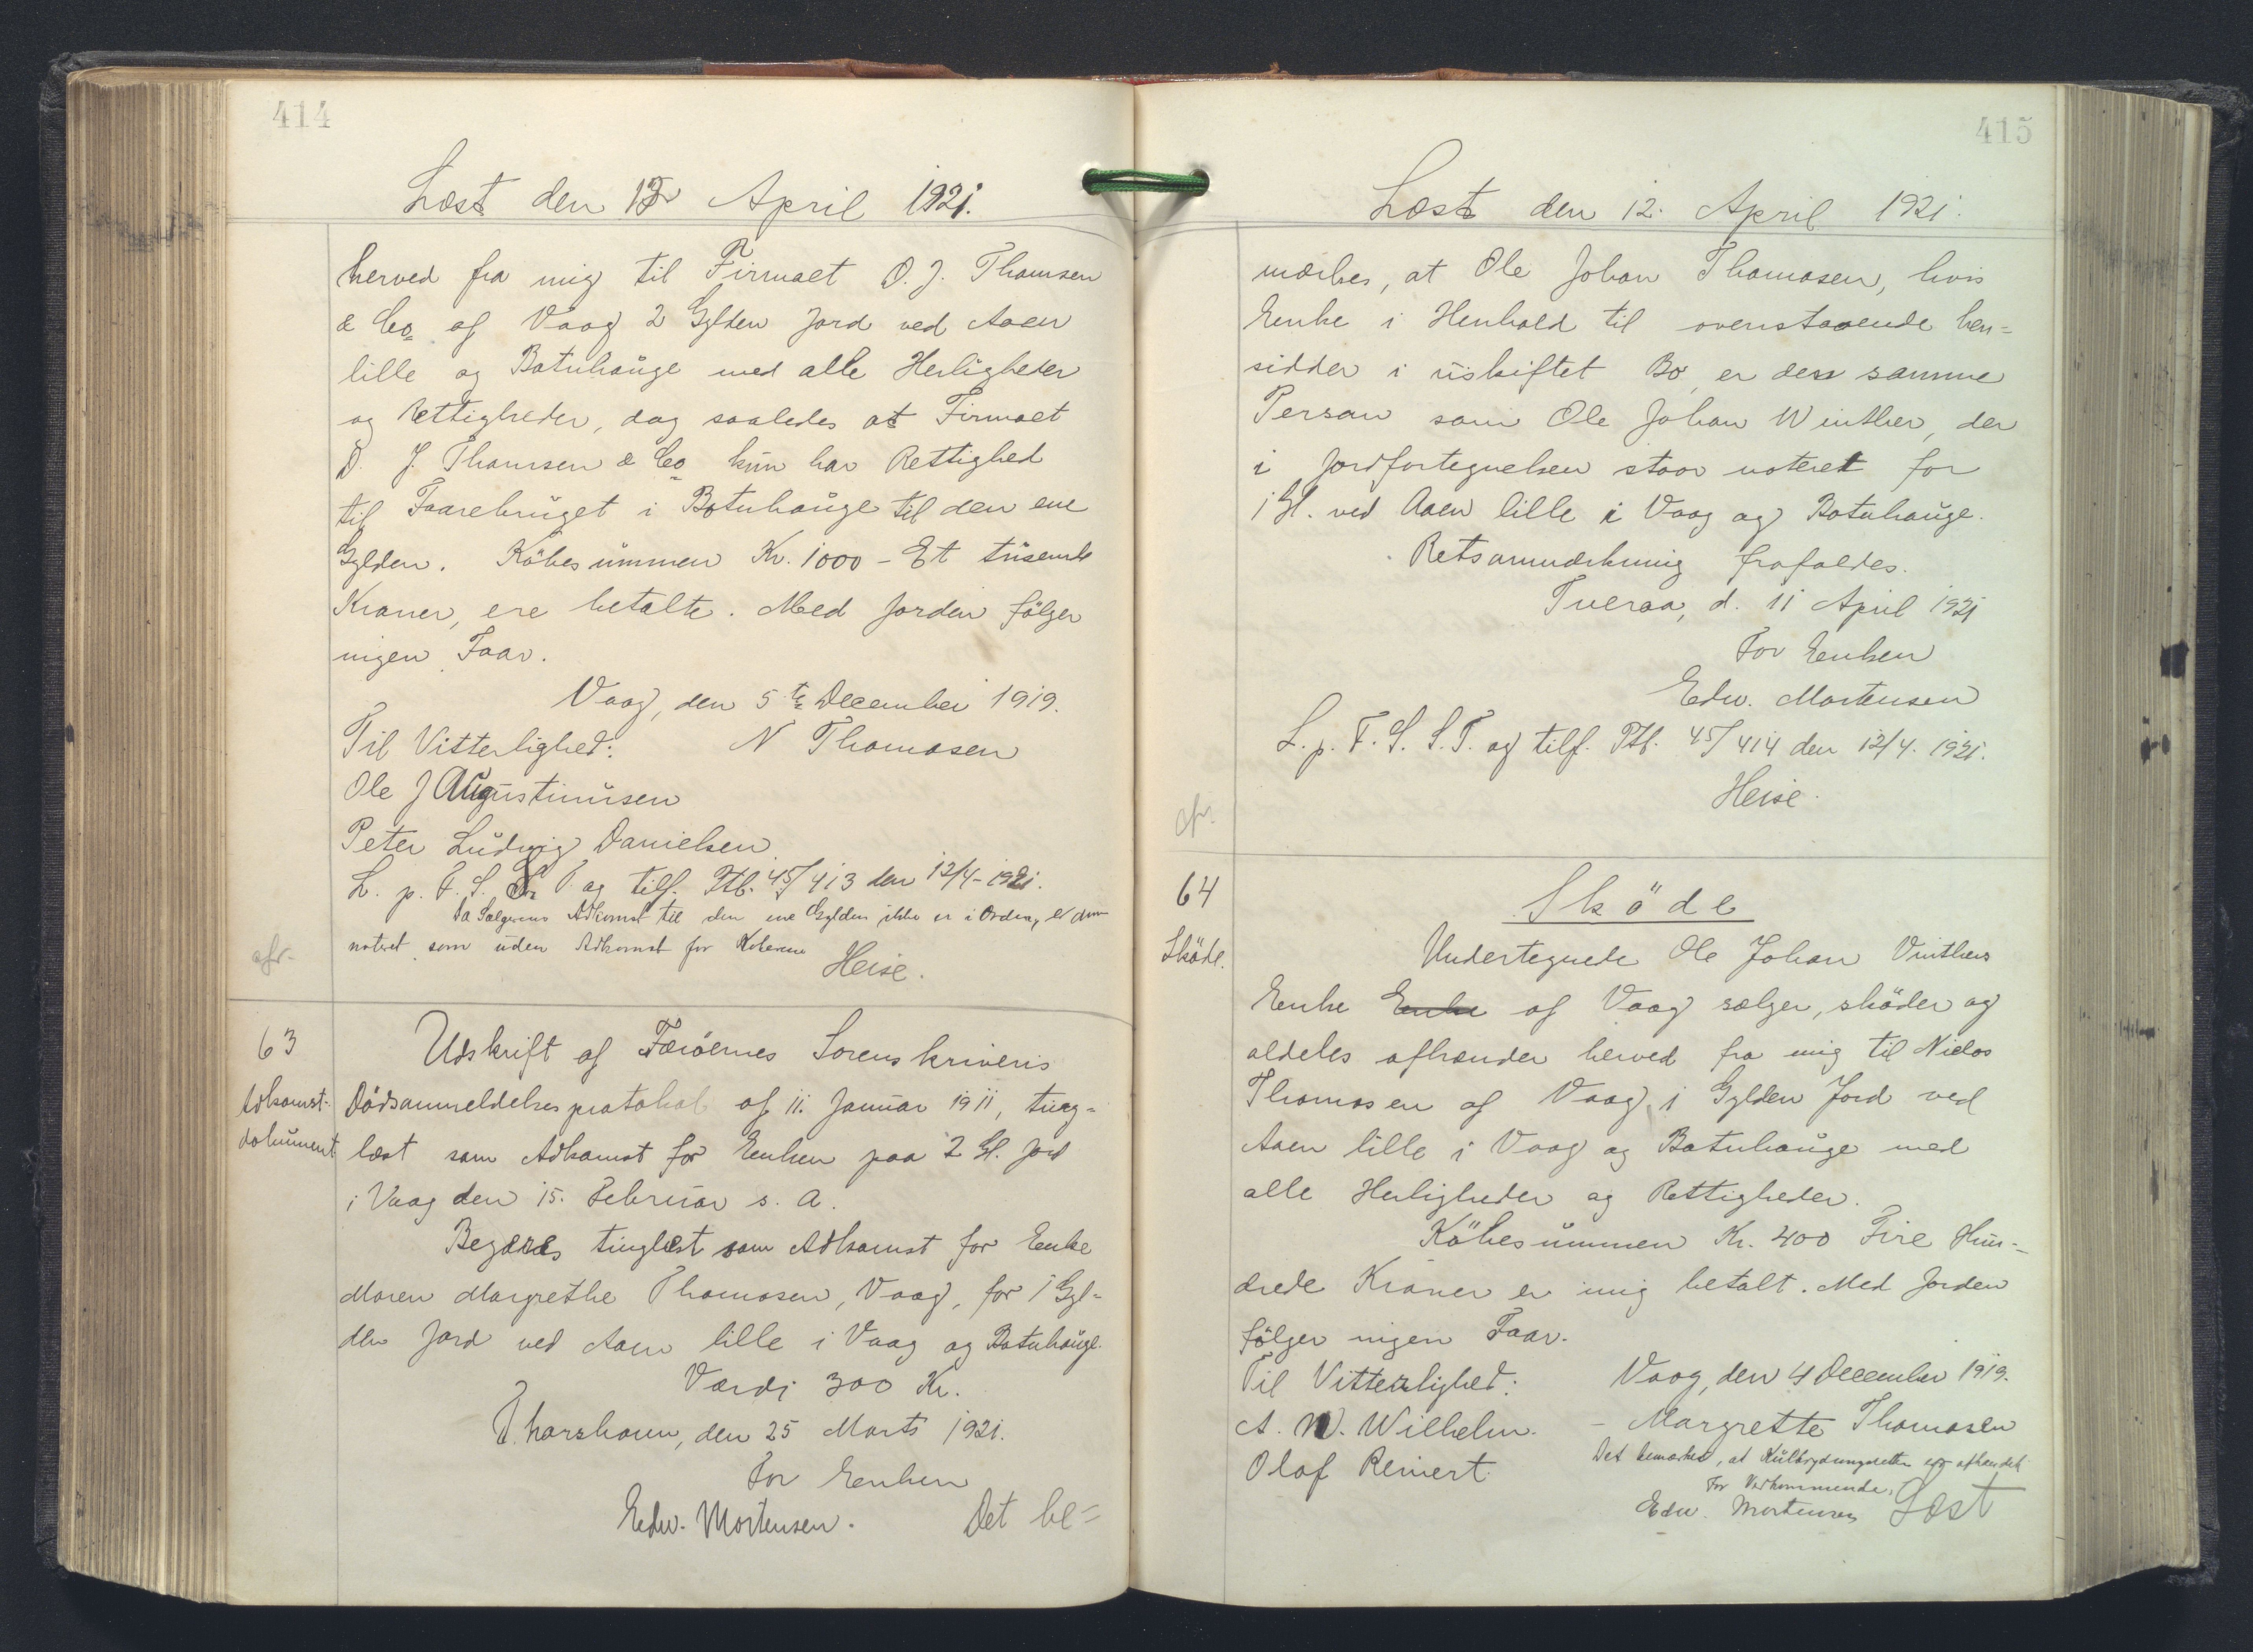 414
Læst den 12 April 1921.
herved fra mig til Firmaet D. J. Thomsen
& Co af Vaag 2 Gylden Jord ved Aaen
lille og Botnhauge med alle Herligheder
og Rettigheder, dog saaledes at Firmaet
D. J. Thomsen & Co kun har Rettighed
til Faarebruget i Botnhauge til den ene
Gylden. Köbesummen Kr. 1000 - Et tusende
Kroner, ere betalte. Med Jorden fölger
ingen Faar.
Vaag, den 5te December 1919.
Til Vitterlighed: N Thomasen
Ole J Augustinusen
Peter Ludvig Danielsen
L. p. F. S. S. T. og tilf. Ptb. 45/413 den 12/4-1921.
Da Sælgerens Adkomst til den ene Gylden ikke er i Orden, er den
noteret som uden Adkomst for Køberne
Heise.
afr.
63
Adkomst-
dokument
Udskrift af Færöernes Sorenskriveris
Dödsanmeldelsesprotokol af 11. Januar 1911, ting-
læst som Adkomst for Enken paa 2 Gl. Jord
i Vaag den 15. Februar s. A.
Begæres tinglæst som Adkomst for Enke
Maren Margrethe Thomasen, Vaag, for 1 Gyl-
den Jord ved Aaen lille i Vaag og Botnhauge.
Værdi 300 Kr.
Thorshavn, den 25 Marts 1921.
For Enken
Edw. Mortensen. Det be-
415
Læst den 12. April 1921.
mærkes, at Ole Johan Thomasen, hvis
Enke i Henhold til ovenstaaende hen-
sidder i uskiftet Bo er den samme
Person som Ole Johan Winther, der
i Jordfortegnelsen staar noteret for
1 Gl. ved Aaen lille i Vaag og Botnhauge.
Retsanmærkning frafaldes.
Tveraa, d. 11 April 1921
For Enken
Edw. Mortensen
L. p. F. S. S. T. og tilf. Ptb. 45/414 den 12/4. 1921.
Heise.
afr.
64
Sköde.
Sköde
Undertegnede Ole Johan Vinthers
Enke Enke af Vaag sælger, sköder og
aldeles afhænder herved fra mig til Niclas
Thomasen af Vaag, 1 Gylden Jord ved
Aaen lille i Vaag og Botnhauge med
alle Herligheder og Rettigheder.
Köbesummen Kr. 400 Fire Hun-
drede Kroner er mig betalt. Med Jorden
fölger ingen Faar.
Til Vitterlighed: Vaag, den 4 December 1919.
A. W. Wilhelm. - Margrette Thomasen
Olaf Reinert. Det bemærkes, at Kulbrydningsretten er afhændet
For Vedkommende,
Edw. Mortensen Læst